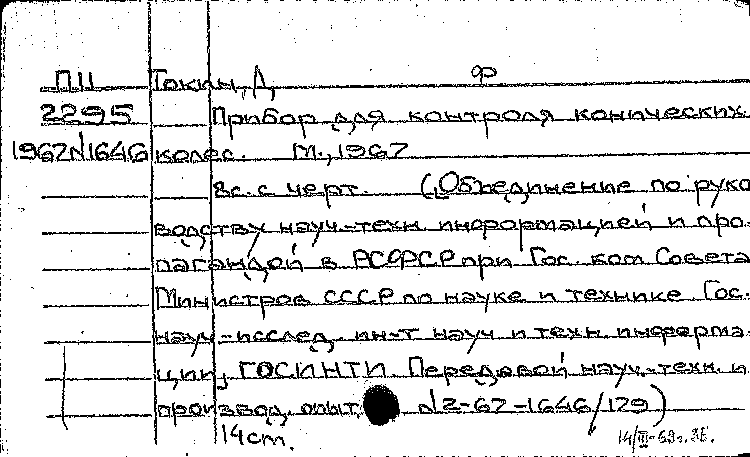 ПII Токин, Д. Ф
2295 Прибор для контроля конических
1967№1646 колес. М., 1967
8с. с черт. (Объединение по руко
водству науч.-техн. информацией и про-
пагандой в РСФСР при Гос. ком. Совета
Министров СССР по науке и технике Гос.
науч-исслед. ин-т науч и техн. информа-
ции, ГОСИНТИ. Передовой науч.-техн. и
производ. опыт № 2-67-1646/129)
14 cm. 14/III-69г.